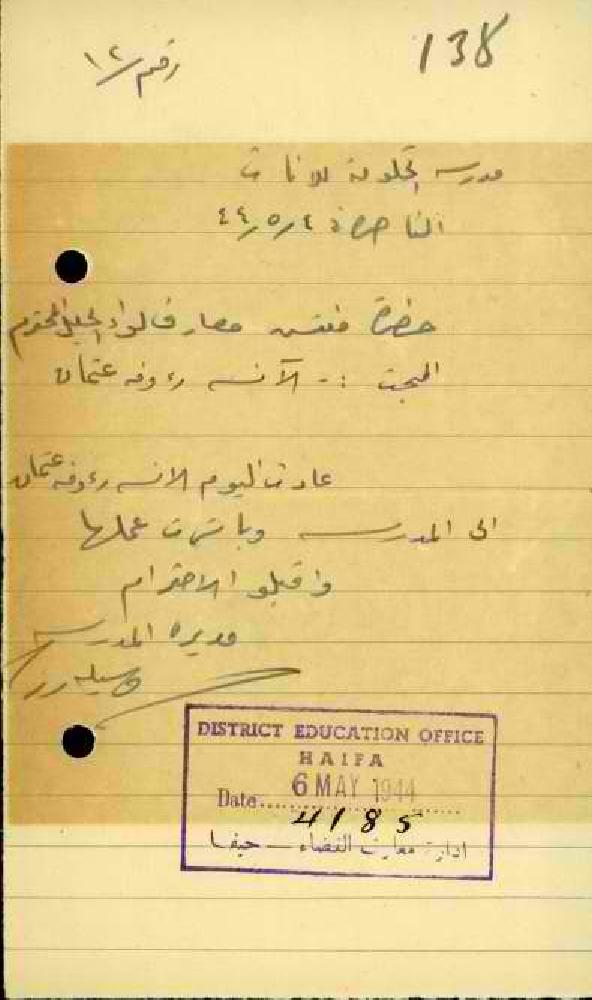 138
رقم /١٢
مدرسة الحكومة للاناث
الناصرة ٤٤/٥/٤
حضرة مفتش معارف لواء الجليل المحترم
المبحث :- الآنسه رءوفه عثمان
عادت اليوم الانسه رءوفه عثمان
الى المدرسه وباشرت عملها
واقبلو الاحترام
مديرة المدرسه
DISTRICT EDUCATION OFFICE
HAIFA
Date..... 6 MAY 1944
4185
ادارة معارف القضاء - حيفا